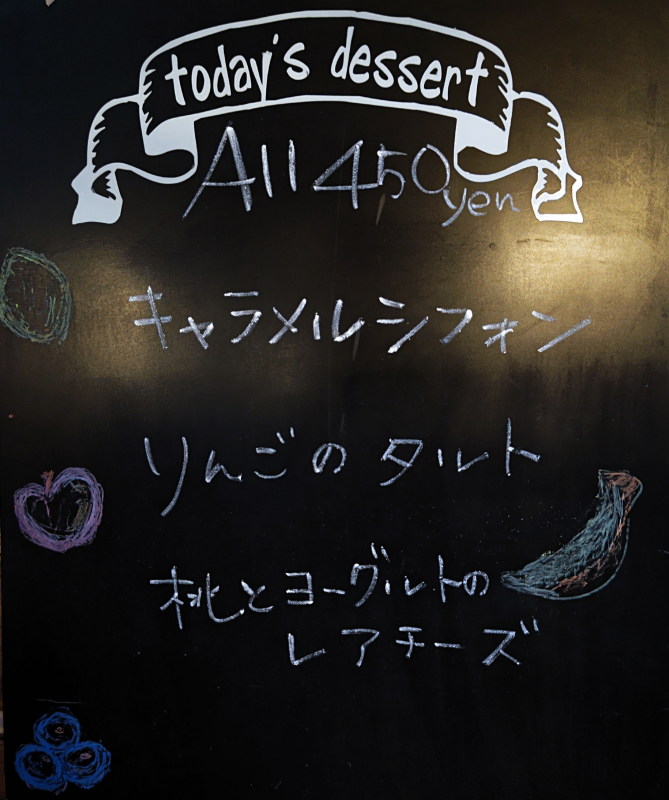 today's dessert
All 450yen
キャラメルシフォン
りんごのタルト
桃とヨーグルトの
レアチーズ